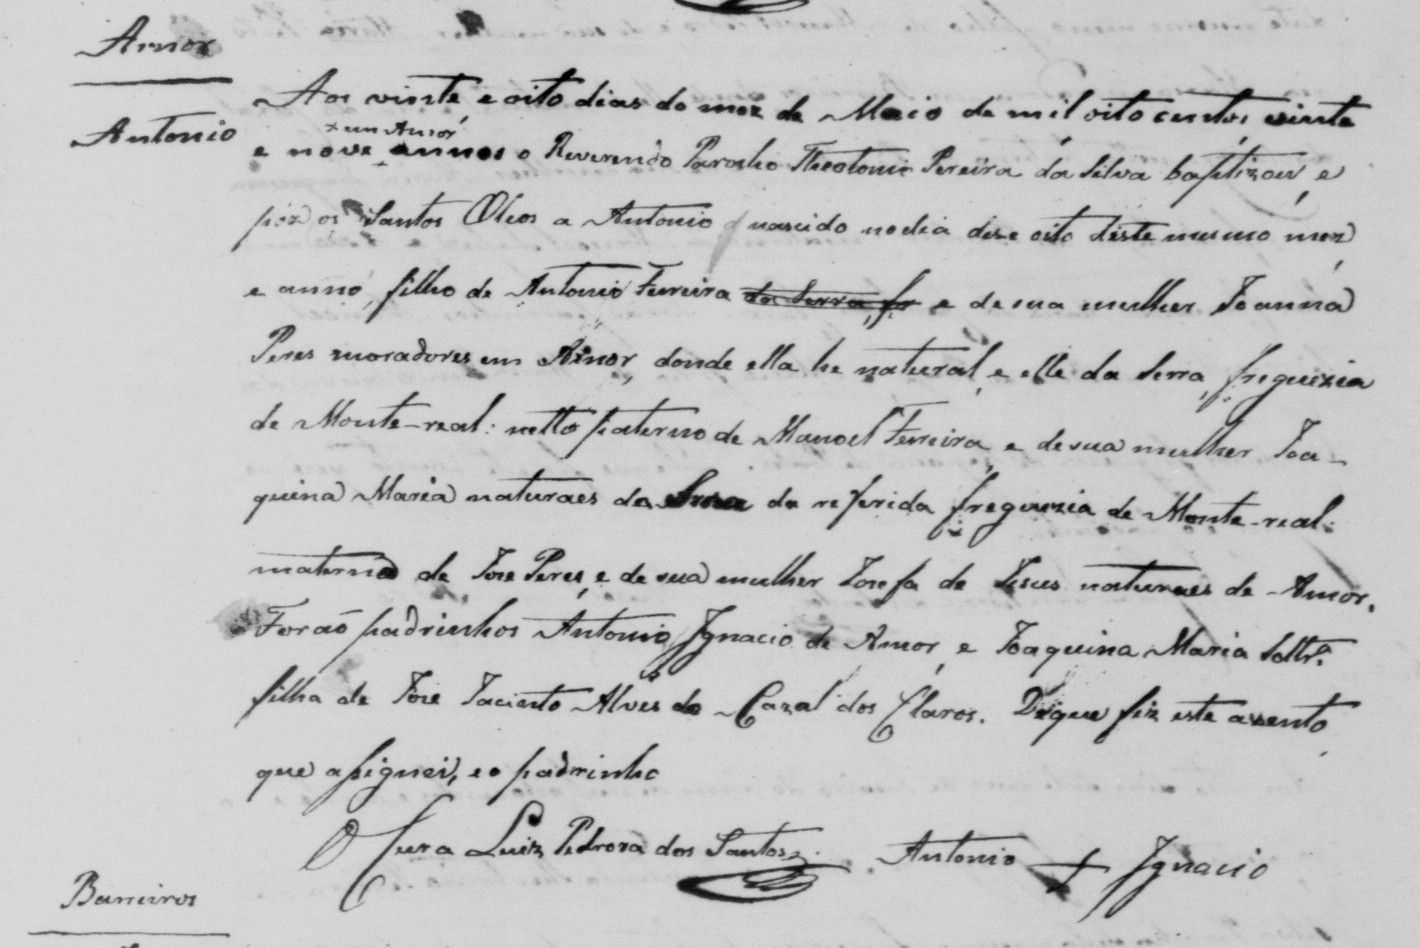 Amor
Antonio
Aos vinte e oito dias do mez de Maio de mil oito centos vinte
x em Amor
e nove annos o Reverendo Parocho Theotonio Pereira da Silva baptizou, e
pôz os Santos Oleos a Antonio nascido no dia dize oito deste mesmo mez
e anno, filho de Antonio Ferreira da Serra, fr e de sua mulher Joanna
Peres moradores em Amor, donde ella he natural, e elle da Serra, freguezia
de Monte-real: netto paterno de Manoel Ferreira, e de sua mulher Joa-
quina Maria naturaes da Serra da referida freguezia de Monte-real:
materno de Joze Peres, e de sua mulher Josefa de Jesus naturaes de Amor.
Forão padrinhos Antonio Ignacio de Amor, e Joaquina Maria Soltrª
filha de Joze Jacinto Alves do Cazal dos Claros. De que fiz este assento
que assignei, e o padrinho
O Cura Luiz Pedroza dos Santos Antonio + Ignacio
Barreiros